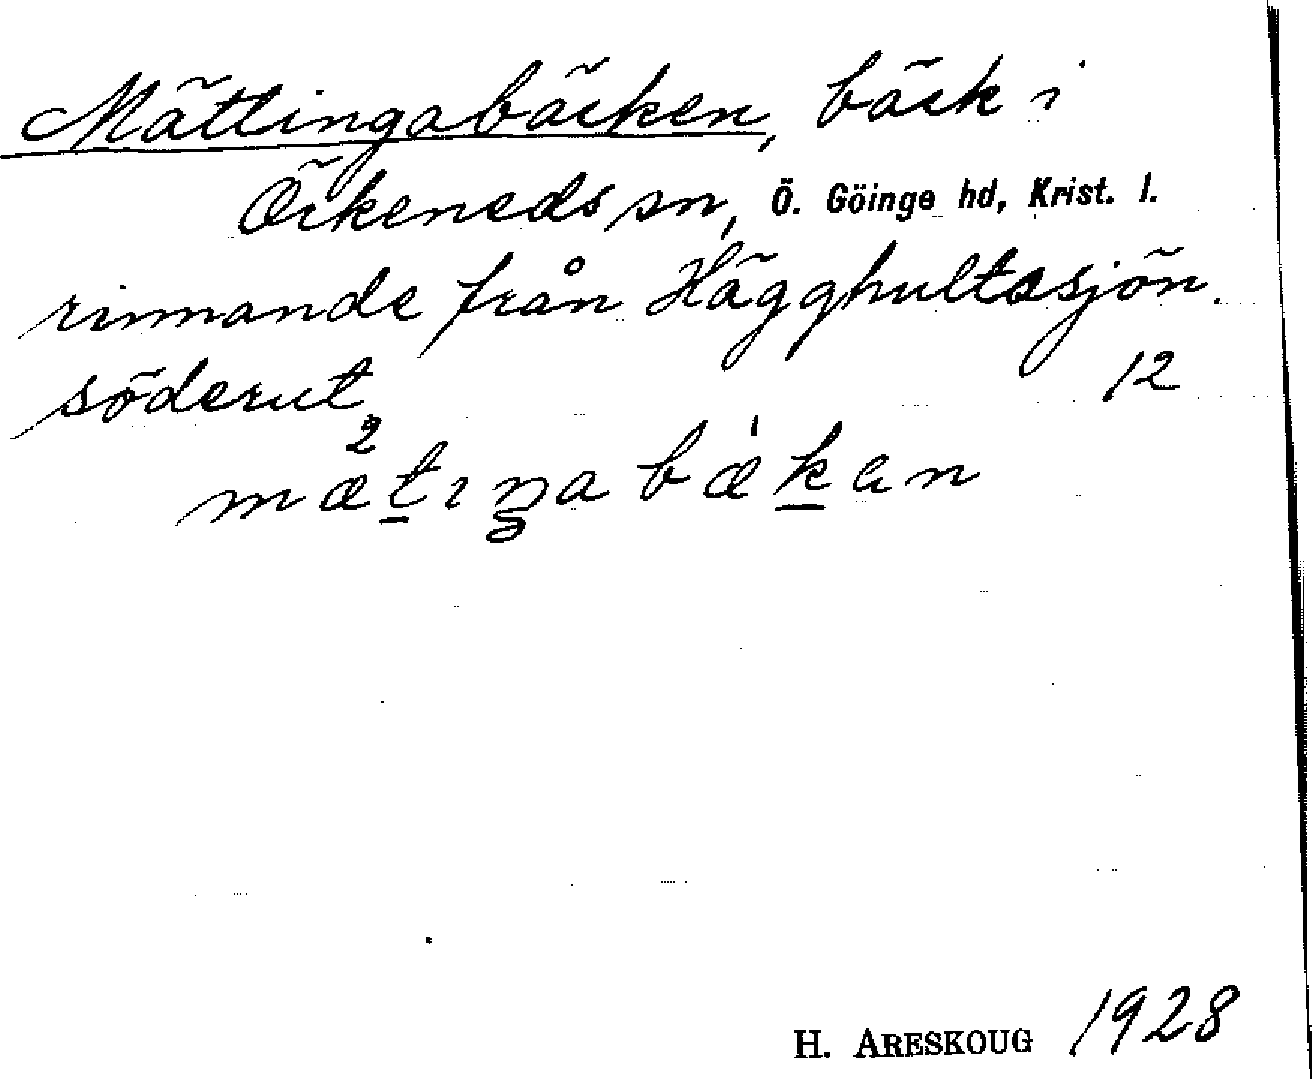 Mättingabäcken, bäck i
Örkeneds sn, Ö. Göinge hd, Krist. l.
rinnande från Hägghultasjön
söderut. 12
mæ²tıŋa bæ̍kan
H. ARESKOUG 1928